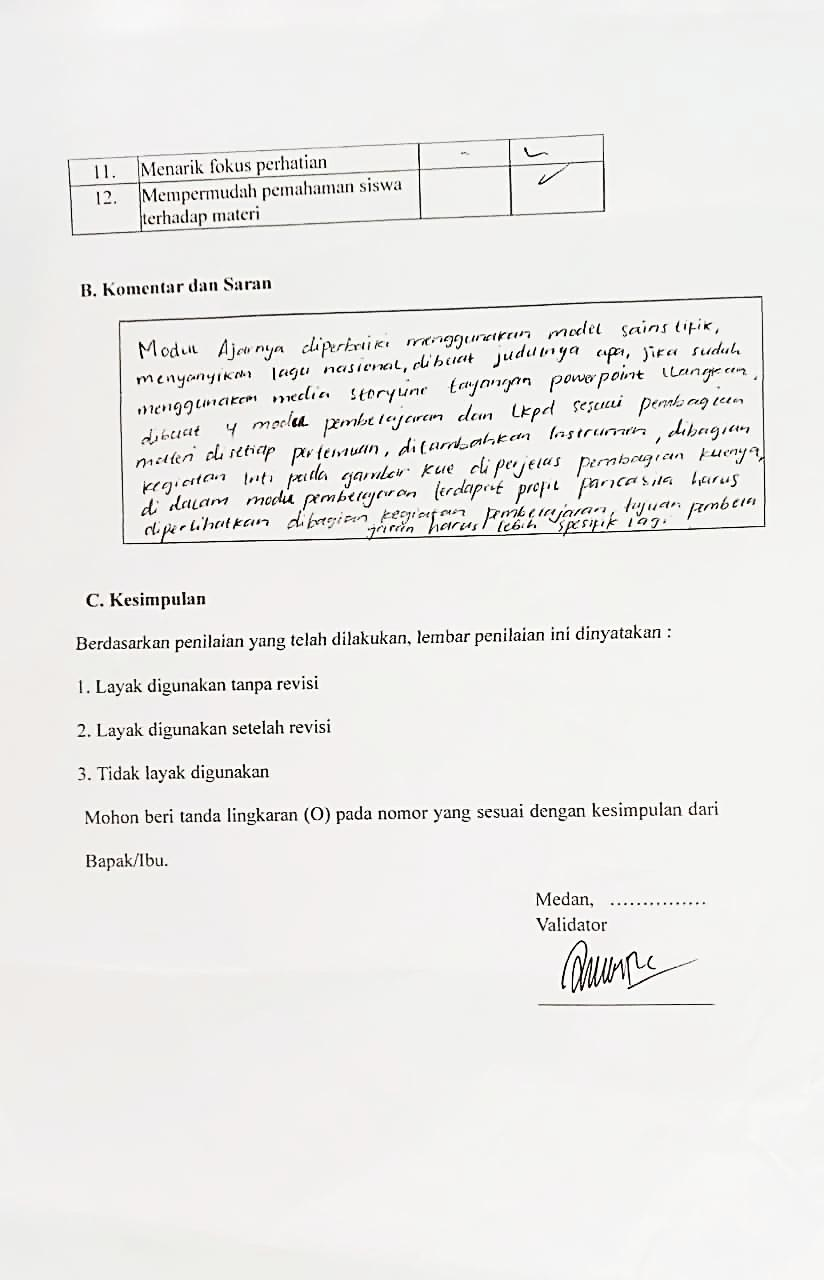 11. Menarik fokus perhatian - ✓
12. Mempermudah pemahaman siswa ✓
terhadap materi
B. Komentar dan Saran
Modul Ajarnya diperbaiki menggunakan model saintifik,
menyanyikan lagu nasional, dibuat judulnya apa, jika sudah
menggunakan media storyline tayangan powerpoint ilangkan,
dibuat 4 modul pembelajaran dan lkpd sesuai pembagian
materi di setiap pertemuan, ditambahkan Instrumen, dibagian
kegiatan Inti pada gambar kue diperjelas pembagian kuenya,
di dalam modul pembelajaran terdapat profil pancasila harus
diperlihatkan dibagian kegiatan pembelajaran, tujuan pembela
jaran harus lebih spesifik lagi
C. Kesimpulan
Berdasarkan penilaian yang telah dilakukan, lembar penilaian ini dinyatakan :
1. Layak digunakan tanpa revisi
2. Layak digunakan setelah revisi
3. Tidak layak digunakan
Mohon beri tanda lingkaran (O) pada nomor yang sesuai dengan kesimpulan dari
Bapak/Ibu.
Medan, ...............
Validator